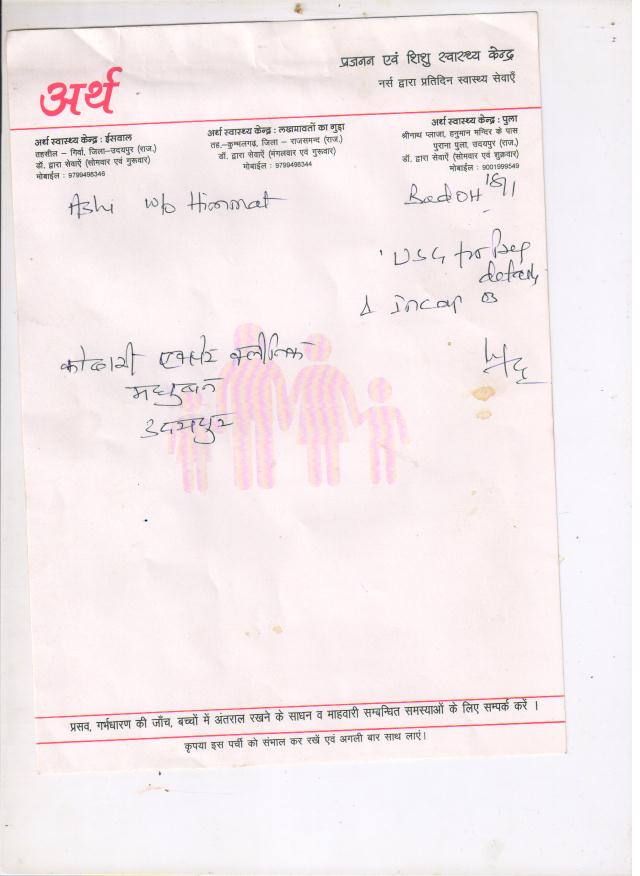 अर्थ
प्रजनन एवं शिशु स्वास्थ्य केन्द्र
नर्स द्वारा प्रतिदिन स्वास्थ्य सेवाएँ
अर्थ स्वास्थ्य केन्द्र : ईसवाल
तहसील – गिर्वा, जिला–उदयपुर (राज.)
डॉ. द्वारा सेवाऐं (सोमवार एवं गुरूवार)
मोबाईल : 9799498346
अर्थ स्वास्थ्य केन्द्र : लखमावतों का गुड़ा
तह.–कुम्भलगढ़, जिला – राजसमन्द (राज.)
डॉ. द्वारा सेवाऐं (मंगलवार एवं गुरूवार)
मोबाईल : 9799498344
अर्थ स्वास्थ्य केन्द्र : पुला
श्रीनाथ प्लाजा, हनुमान मन्दिर के पास
पुराना पुला, उदयपुर (राज.)
डॉ. द्वारा सेवाऐं (सोमवार एवं शुक्रवार)
मोबाईल : 9001999549
w/o Himmat
USG for
कोठारी एक्सरे क्लीनिक
मधुबन
उदयपुर
प्रसव, गर्भधारण की जाँच, बच्चों में अंतराल रखने के साधन व माहवारी सम्बन्धित समस्याओं के लिए सम्पर्क करें ।
कृपया इस पर्ची को संभाल कर रखें एवं अगली बार साथ लाएं।